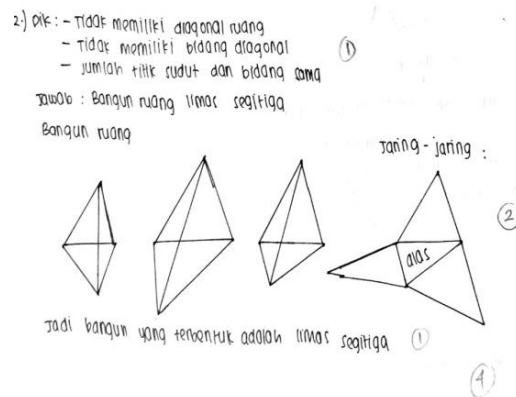 2.) Dik : - Tidak memiliki diagonal ruang
- Tidak memiliki bidang diagonal
- Jumlah titik sudut dan bidang sama
1
Jawab : Bangun ruang limas segitiga
Bangun ruang
Jaring - jaring :
2
alas
Jadi bangun yang terbentuk adalah limas segitiga 1
4